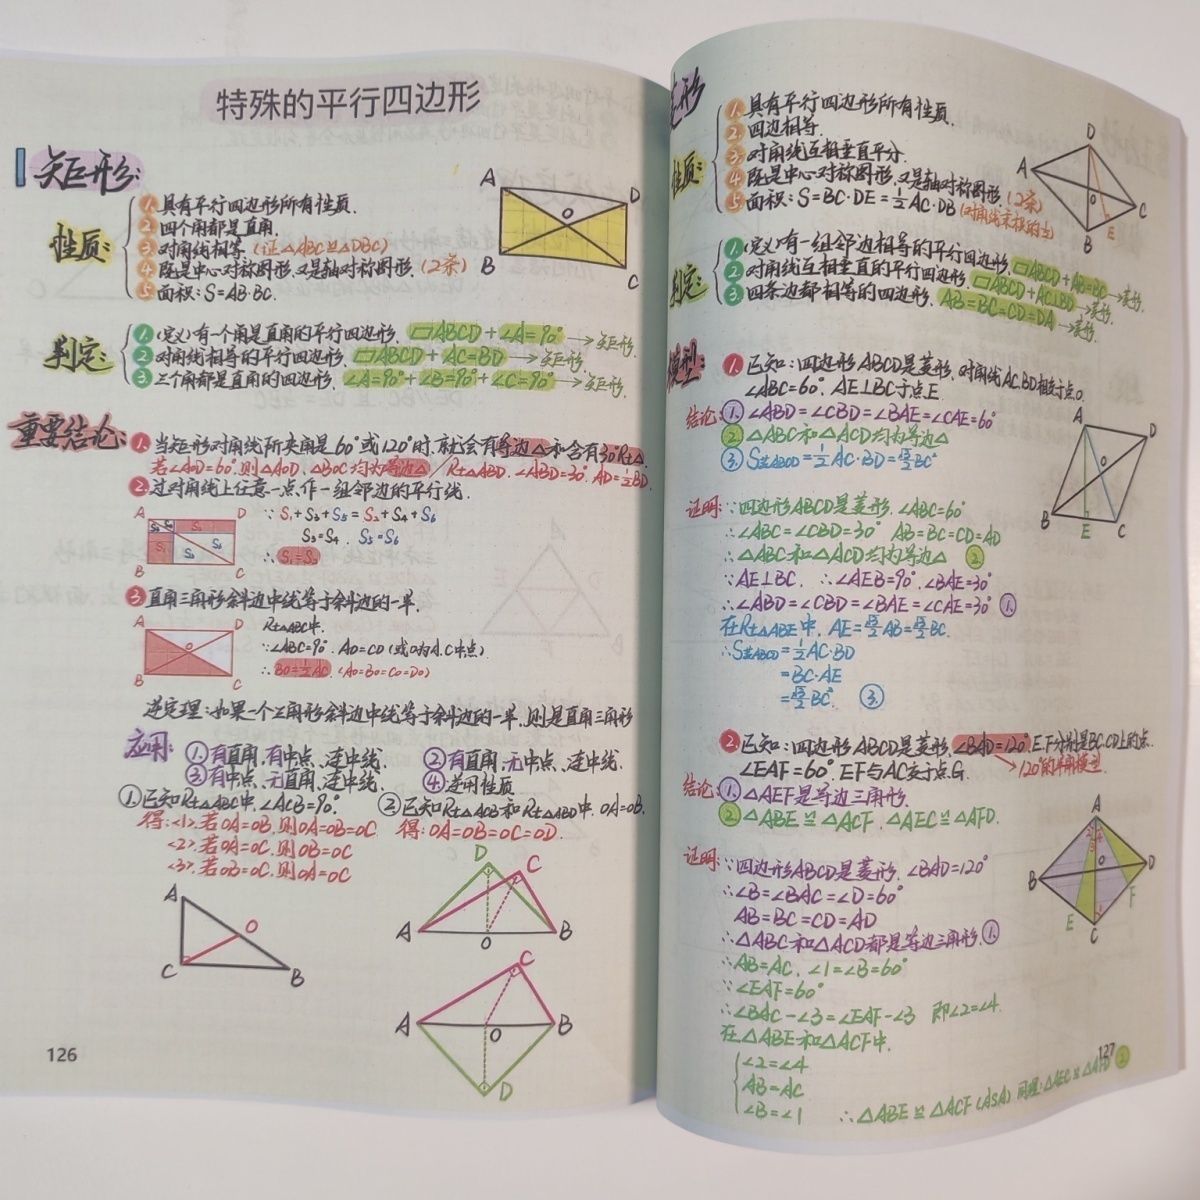 特殊的平行四边形
矩形:
性质:
1. 具有平行四边形所有性质.
2. 四个角都是直角.
3. 对角线相等 (证△ABC≌△DBC)
4. 既是中心对称图形,又是轴对称图形. (2条)
5. 面积: S=AB·BC.
A D
O
B C
判定:
1. (定义)有一个角是直角的平行四边形. ▱ABCD + ∠A=90° → 矩形.
2. 对角线相等的平行四边形. ▱ABCD + AC=BD → 矩形.
3. 三个角都是直角的四边形. ∠A=90°+∠B=90°+∠C=90° → 矩形.
重要结论:
1. 当矩形对角线所夹角是60°或120°时,就会有等边△和含有30°Rt△.
若∠AOD=60°,则△AOD、△BOC均为等边△/Rt△ABD. ∠ABD=30°. AD=½BD.
2. 过对角线上任意一点,作一组邻边的平行线.
A D
B C
∵ S₁+S₃+S₅ = S₂+S₄+S₆
S₃=S₄. S₅=S₆
∴ S₁=S₂
3. 直角三角形斜边中线等于斜边的一半.
A D
O
B C
Rt△ABC中.
∵∠ABC=90°. AO=CO (或O为A.C中点)
∴ BO=½AC. (AO=BO=CO=DO)
逆定理: 如果一个三角形斜边中线等于斜边的一半,则是直角三角形
应用: ①.有直角,有中点、连中线. ②有直角,无中点、连中线.
③有中点、无直角、连中线. ④.逆用性质
①.已知Rt△ABC中.∠ACB=90°. ②已知Rt△ACB和Rt△ABD中. OA=OB.
得:<1>.若OA=OB.则OA=OB=OC 得: OA=OB=OC=OD.
<2>.若OA=OC.则OB=OC
<3>.若OB=OC.则OA=OC
A
O
C B
D C
A O B
C
A O B
D
126
形
性质:
1. 具有平行四边形所有性质.
2. 四边相等.
3. 对角线互相垂直平分.
4. 既是中心对称图形,又是轴对称图形. (2条)
5. 面积: S=BC·DE=½AC·DB (对角线乘积的½)
D
A C
O
B E
判定:
1. (定义)有一组邻边相等的平行四边形. ▱ABCD + AB=BC → 菱形.
2. 对角线互相垂直的平行四边形. ▱ABCD + AC⊥BD → 菱形.
3. 四条边都相等的四边形. AB=BC=CD=DA → 菱形.
模型:
1. 已知: 四边形ABCD是菱形. 对角线AC.BD相交于点O.
∠ABC=60°. AE⊥BC于点E.
结论: ①.∠ABD=∠CBD=∠BAE=∠CAE=60°
②△ABC和△ACD均为等边△
③.S菱ABCD=½AC·BD=√3/2BC²
A D
O
B E C
证明: ∵四边形ABCD是菱形. ∠ABC=60°
∴∠ABC=∠CBD=30° AB=BC=CD=AD
∴△ABC和△ACD均为等边△ ②
∵AE⊥BC, ∴∠AEB=90°. ∠BAE=30°
∴∠ABD=∠CBD=∠BAE=∠CAE=30° ①.
在Rt△ABE中. AE=√3/2AB=√3/2BC.
∴S菱ABCD=½AC·BD
=BC·AE
=√3/2BC² ③
2. 已知: 四边形ABCD是菱形. ∠BAD=120°. E.F分别是BC.CD上的点.
∠EAF=60°. EF与AC交于点G. → 120°的半角模型.
结论: ①.△AEF是等边三角形.
②.△ABE≌△ACF. △AEC≌△AFD.
A
B O D
E F
C
证明: ∵四边形ABCD是菱形. ∠BAD=120°
∴∠B=∠BAC=∠D=60°
AB=BC=CD=AD
∴△ABC和△ACD都是等边三角形. ①
∴AB=AC. ∠1=∠B=60°
∵∠EAF=60°
∴∠BAC-∠3=∠EAF-∠3 即∠2=∠4.
在△ABE和△ACF中.
∠2=∠4
AB=AC
∠B=∠1 ∴△ABE≌△ACF (ASA) 同理:△AEC≌△AFD ②
127